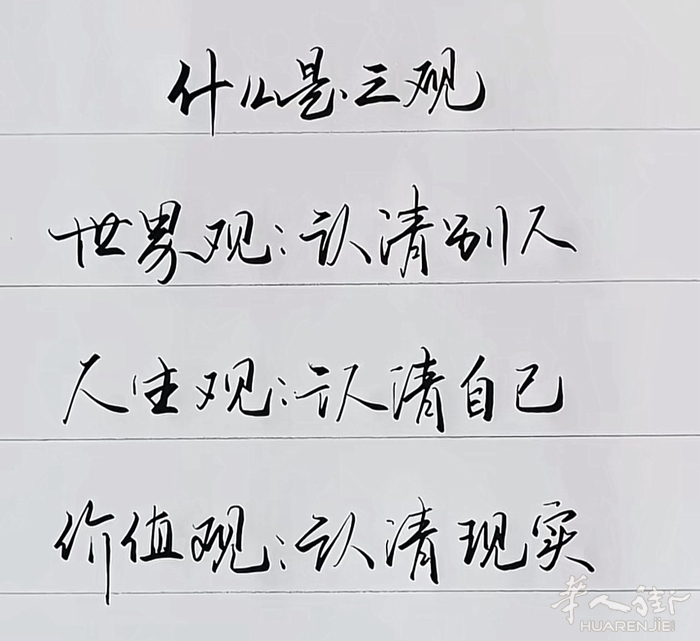 什么是三观
世界观:认清别人
人生观:认清自己
价值观:认清现实
华人街
HUARENJIE